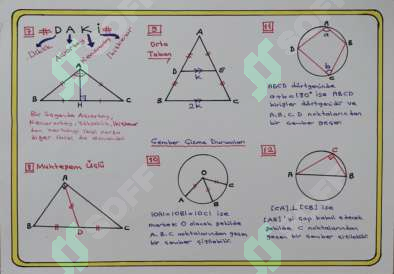 7 # DAKİ #
Dikme
Açıortay
Kenarortay
İkizkenar
A
B
H
C
Bir üçgende Açıortay,
Kenarortay, Yükseklik, İkizkenar
diğer ikisi de
8 Muhteşem Üçlü
A
B
D
C
9
Orta
Taban
A
D
E
k
B
2k
C
Çember Çizme Durumları
10
O
A
B
C
|OA|=|OB|=|OC| ise
merkez O olacak şekilde
A, B, C noktalarından geçen
bir çember çizilebilir.
11
A
a
D
B
b
C
ABCD dörtgeninde
a+b=180° ise ABCD
kirişler dörtgenidir ve
A, B, C, D noktalarından
bir çember geçer.
12
C
A
B
[CA]⊥[CB] ise
[AB]'yi çap kabul edecek
şekilde C noktasından
geçen bir çember çizilebilir.